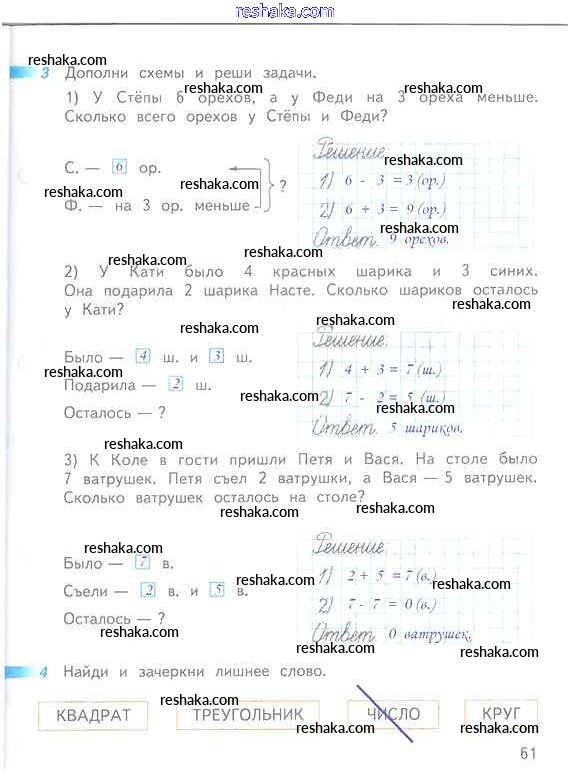 reshaka.com
3 Дополни схемы и реши задачи.
1) У Стёпы 6 орехов, а у Феди на 3 ореха меньше.
Сколько всего орехов у Стёпы и Феди?
С. — 6 ор.
Ф. — на 3 ор. меньше
?
Решение.
1) 6 - 3 = 3 (ор.)
2) 6 + 3 = 9 (ор.)
Ответ. 9 орехов.
2) У Кати было 4 красных шарика и 3 синих.
Она подарила 2 шарика Насте. Сколько шариков осталось
у Кати?
Было — 4 ш. и 3 ш.
Подарила — 2 ш.
Осталось — ?
Решение.
1) 4 + 3 = 7 (ш.)
2) 7 - 2 = 5 (ш.)
Ответ. 5 шариков.
3) К Коле в гости пришли Петя и Вася. На столе было
7 ватрушек. Петя съел 2 ватрушки, а Вася — 5 ватрушек.
Сколько ватрушек осталось на столе?
Было — 7 в.
Съели — 2 в. и 5 в.
Осталось — ?
Решение.
1) 2 + 5 = 7 (в.)
2) 7 - 7 = 0 (в.)
Ответ. 0 ватрушек.
4 Найди и зачеркни лишнее слово.
КВАДРАТ ТРЕУГОЛЬНИК ЧИСЛО КРУГ
61